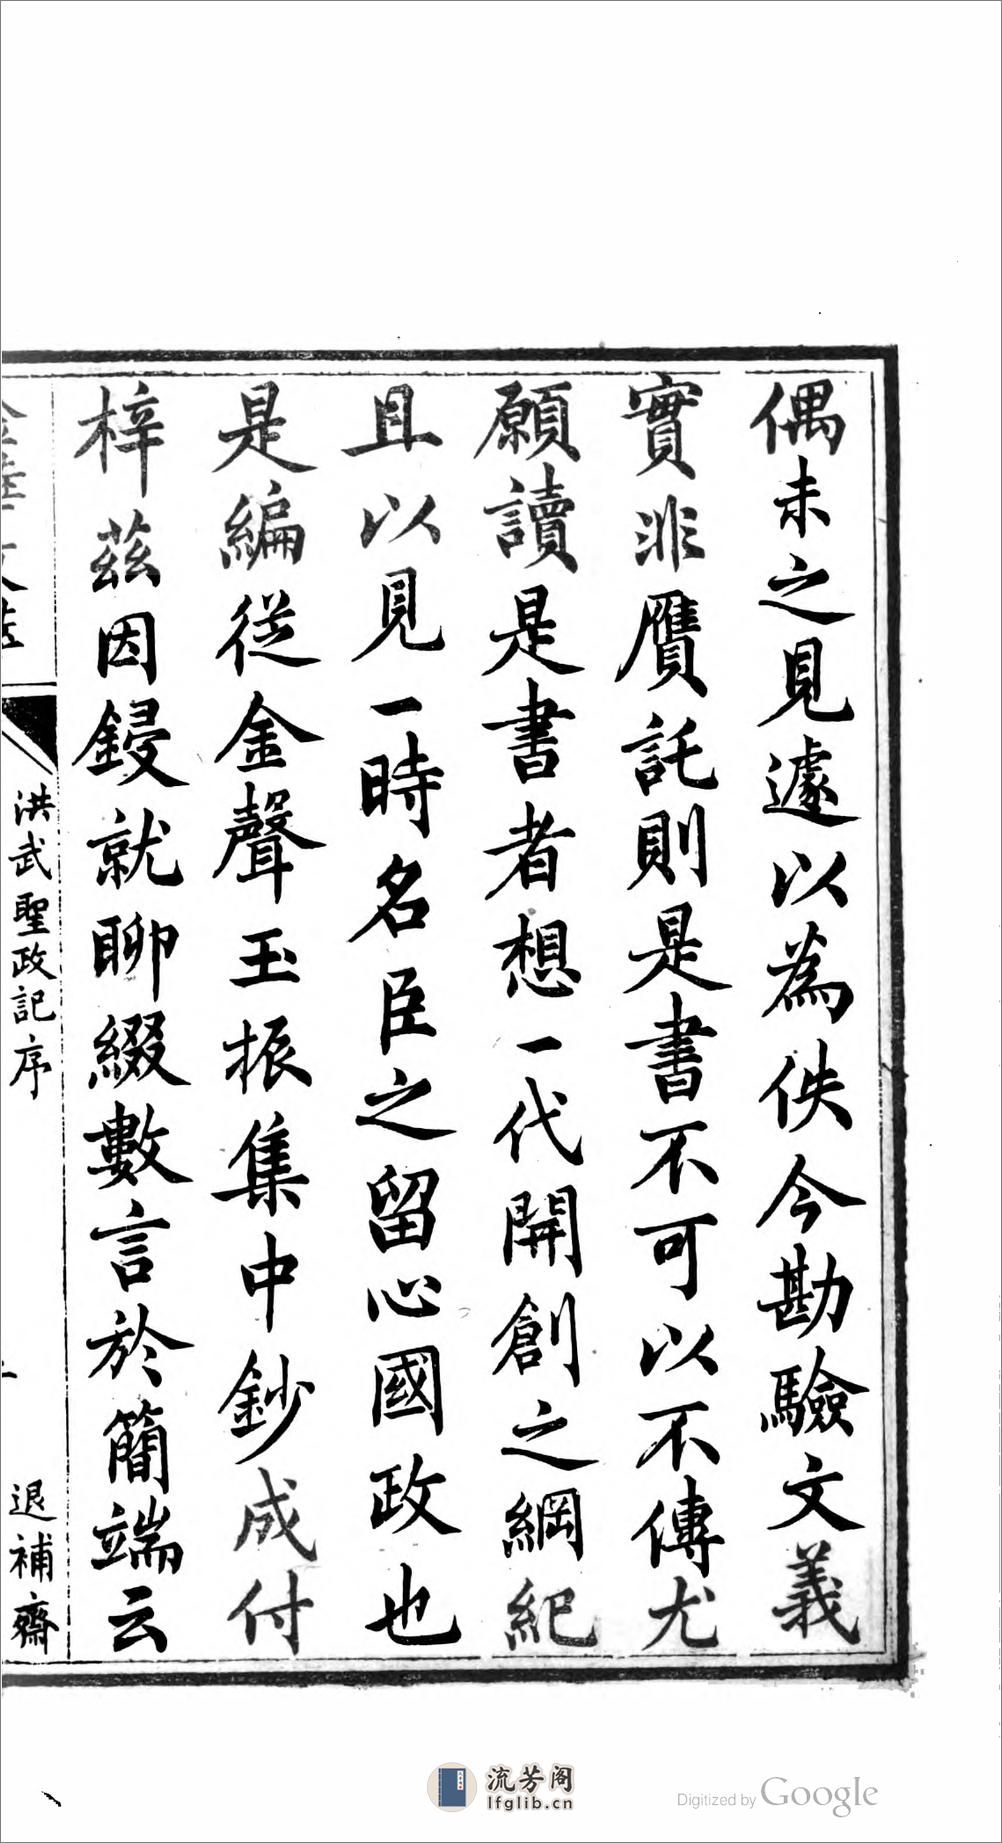 偶未之見遽以為佚今勘驗文義
實非贋託則是書不可以不傳尤
願讀是書者想一代開創之綱紀
且以見一時名臣之留心國政也
是編從金聲玉振集中鈔成付
梓茲因鋟就聊綴數言於簡端云
洪武聖政記序
退補齋
流芳阁
lfglib.cn
Digitized by Google